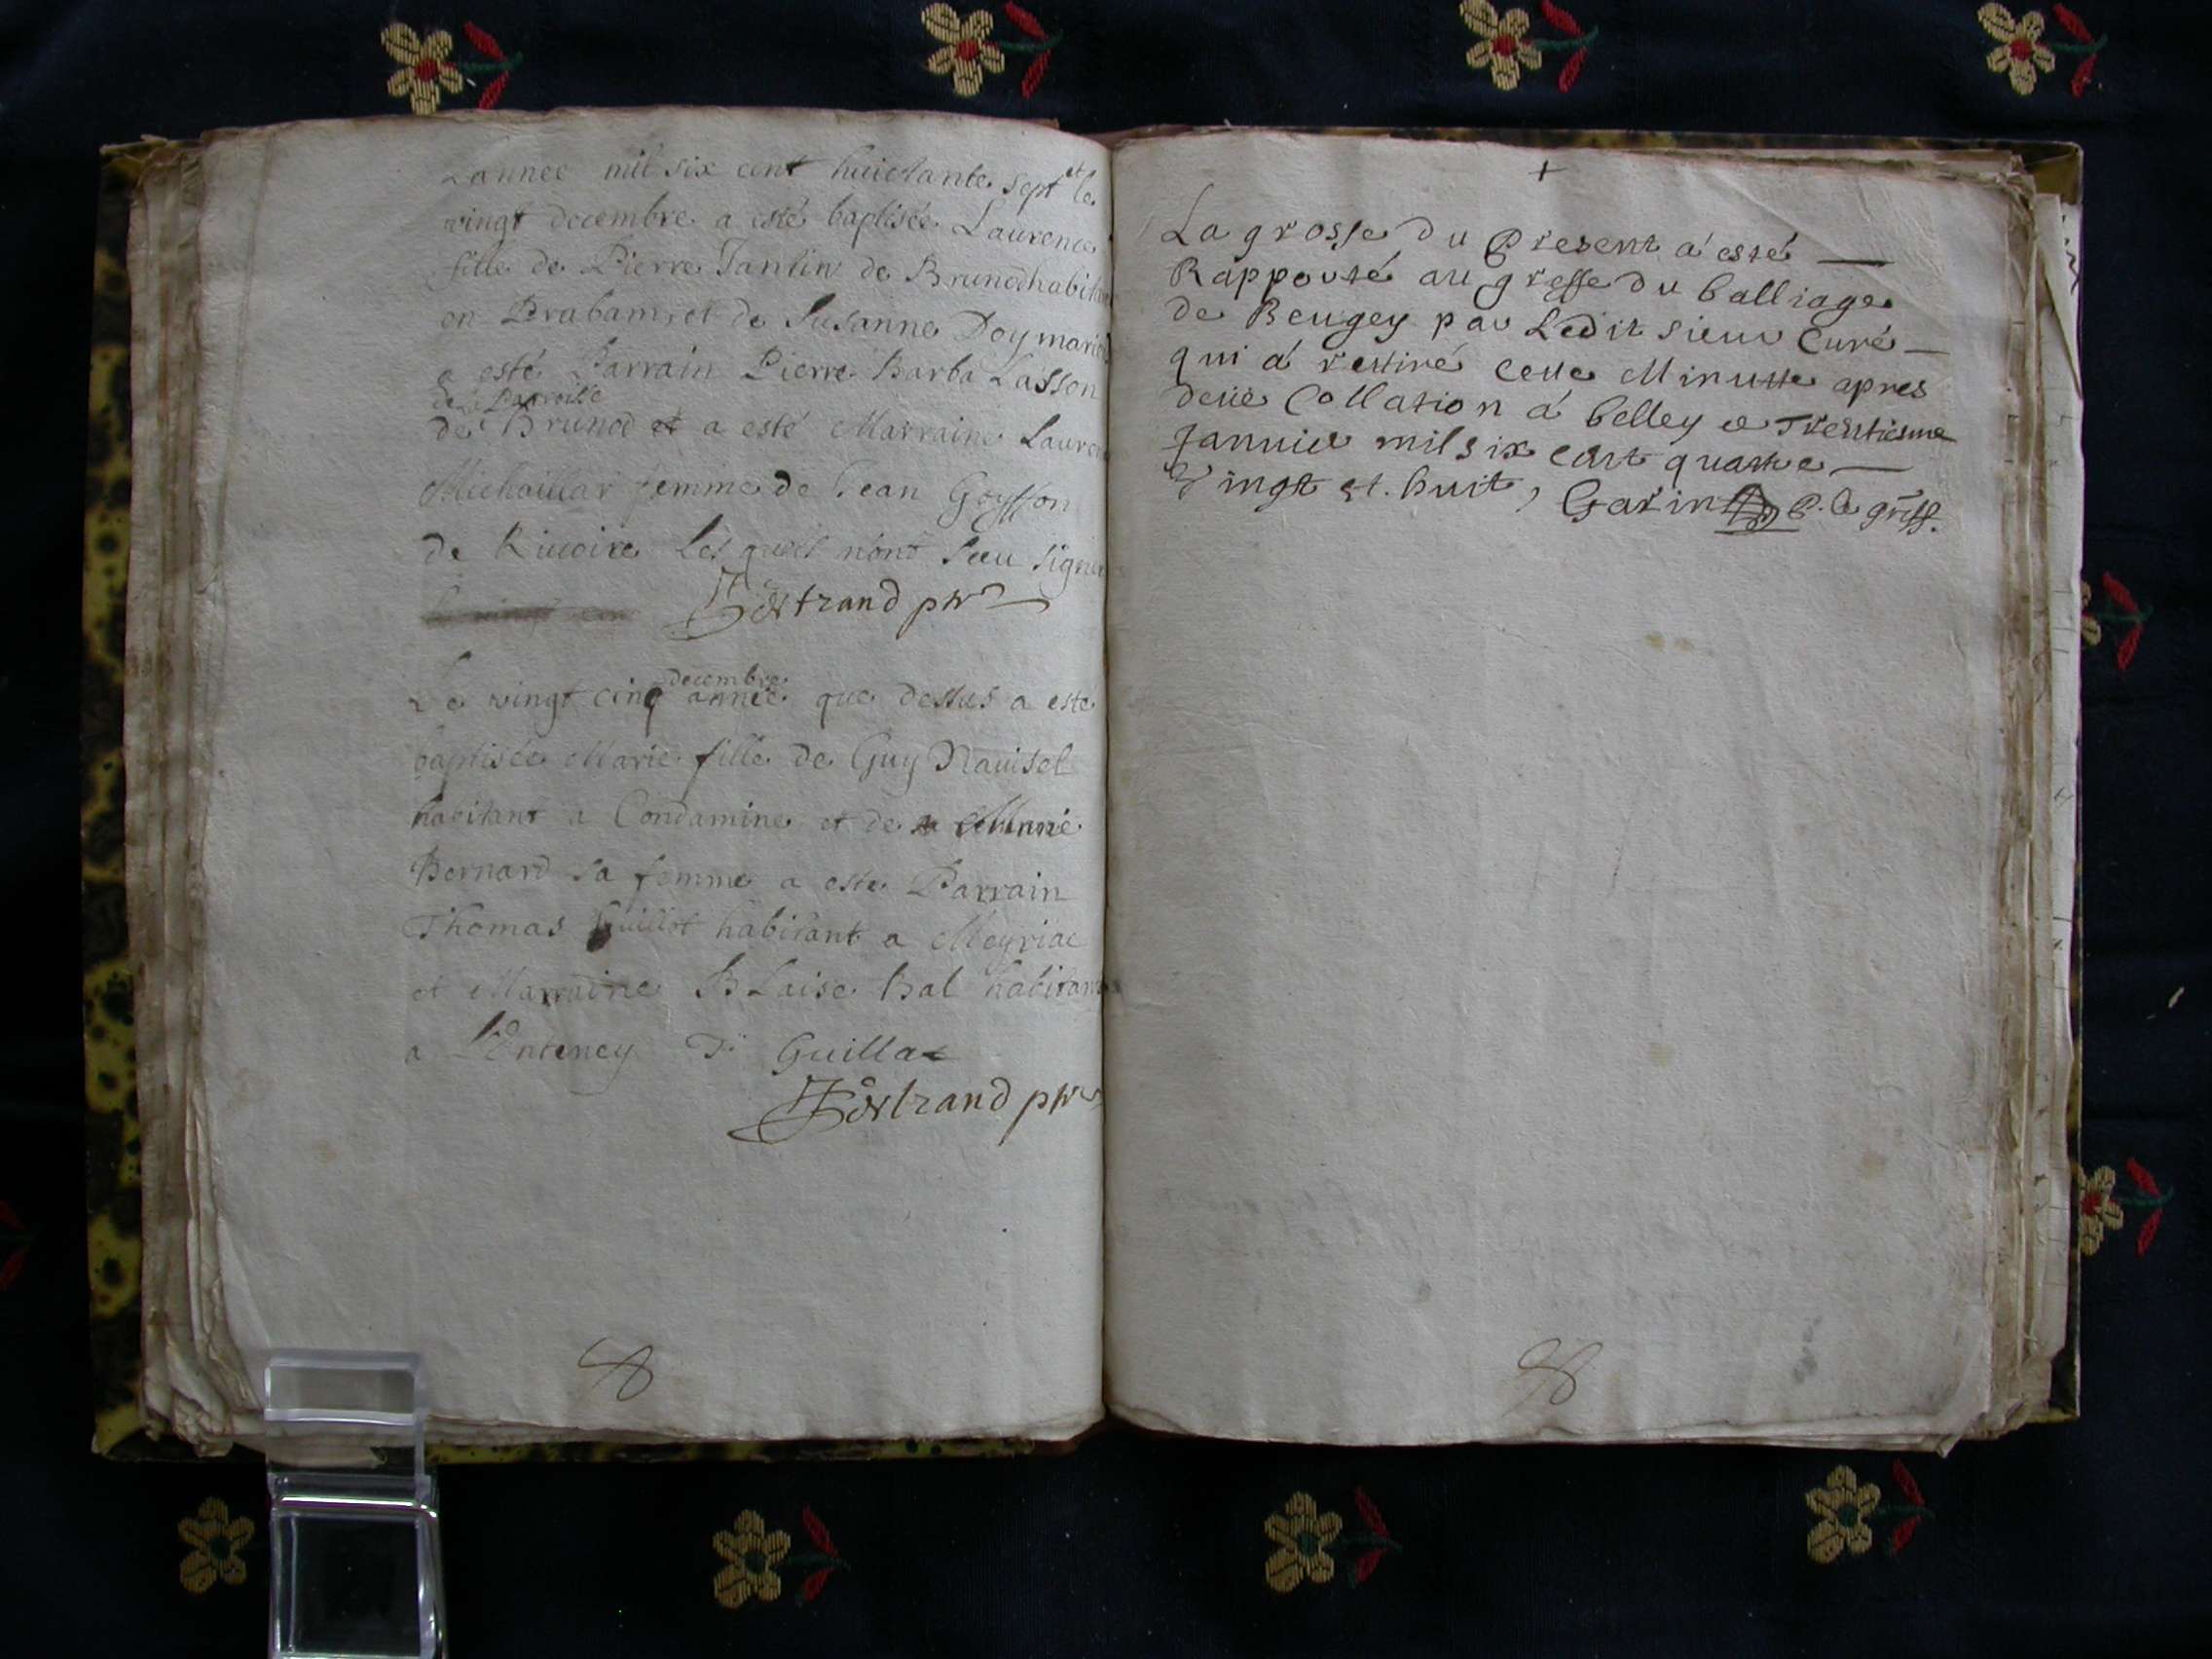 Lannee mil six cent huictante sept et le
vingt decembre a esté baptisée Laurence
fille de Pierre Tantin de Brunod habitan
en Brabam, et de Susanne Doy mariés
a esté Parrain Pierre Barba Lasson
de la Parroisse
de Brunod et a esté Marraine Lauren
Michaillar femme de Jean Goysson
de Riuoire Les quels nont sceu signer
Bertrand ptre
decembre
Le vingt cinq année que dessus a esté
baptisée Marie fille de Guy Nauisel
habitant a Condamine et de Marie
Bernard sa femme a este Parrain
Thomas Guillot habitant a Meyriac
et Marraine BLaise Bal habitant
a Lenteney T. Guillat
Bertrand ptre
+
La grosse du Present a' esté
Rapporté au greffe du balliage
de Beugey par Ledit sieur Curé
qui a' restiré cette Minutte apres
deüe Collation a' belley ce Trentiesme
Januier mil six cent quattre
Vingt et. huit, Garin P. le greff.